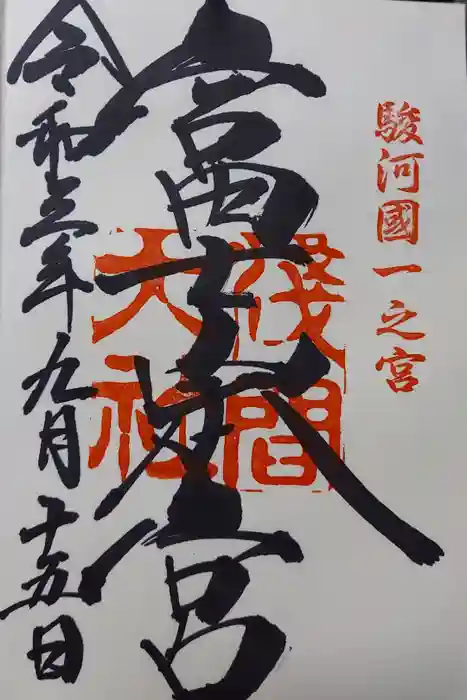 駿河國一之宮
富士本宮
淺間
大社
令和三年九月十五日